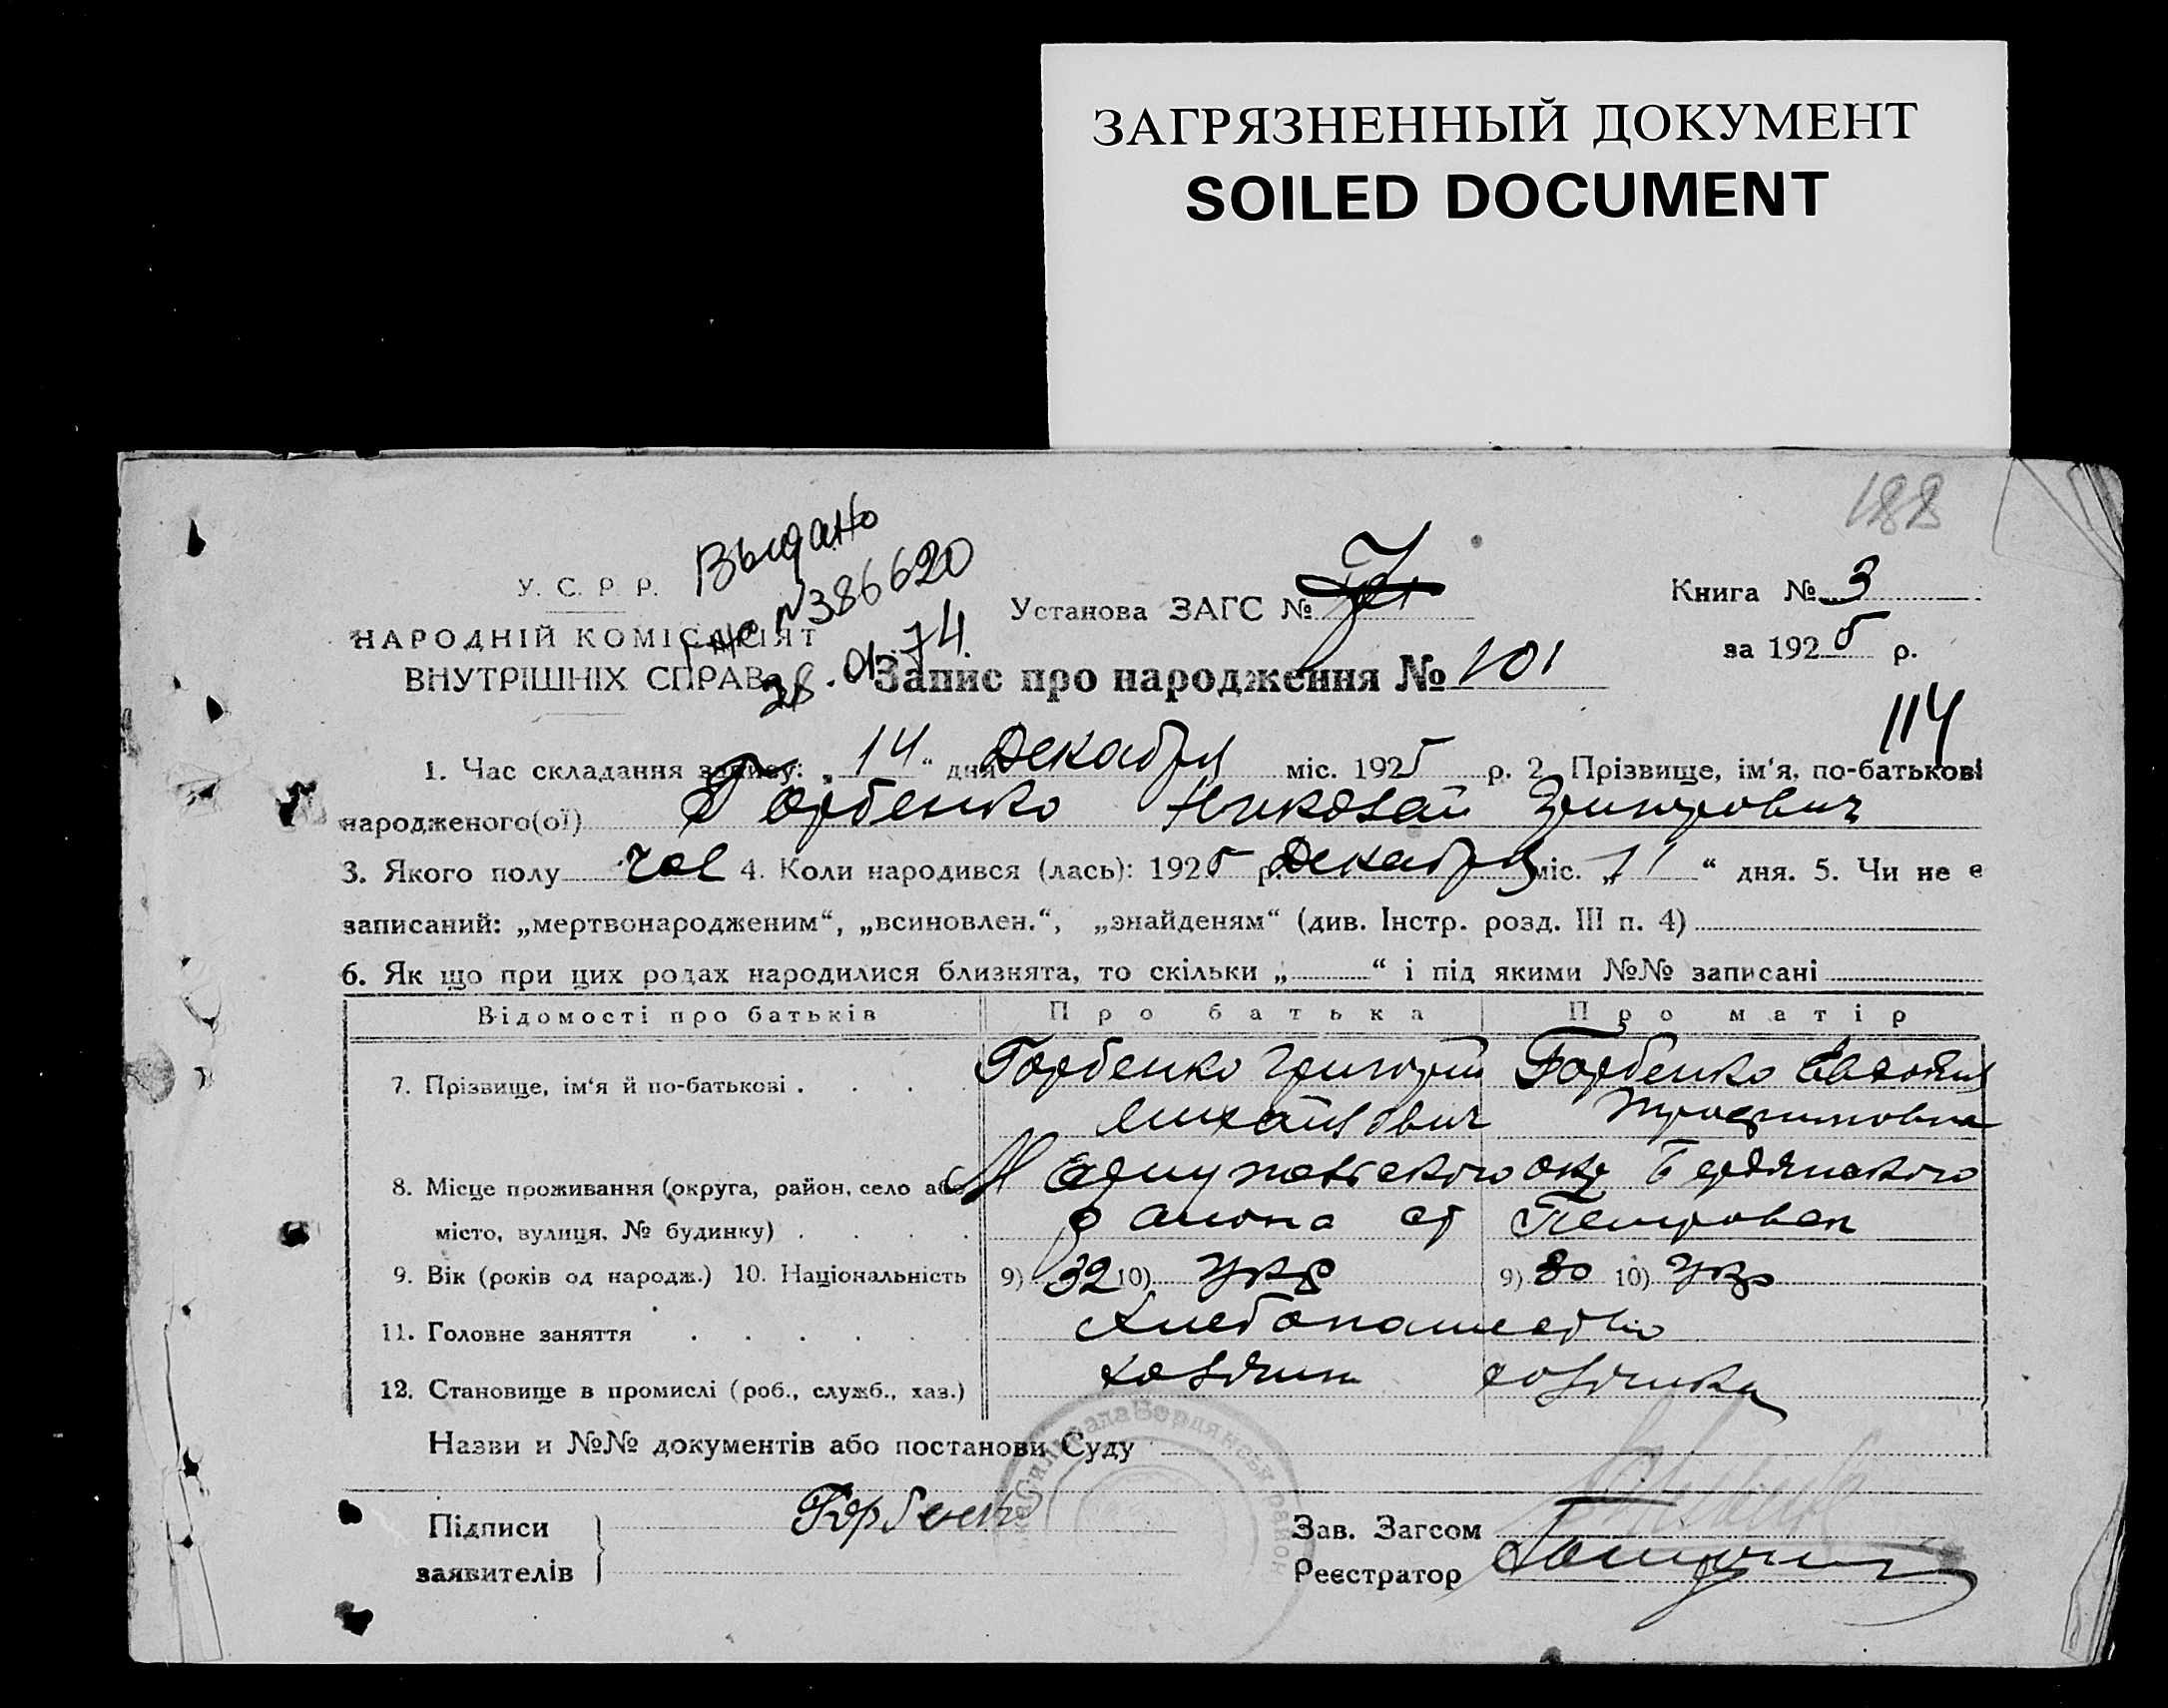 ЗАГРЯЗНЕННЫЙ ДОКУМЕНТ
SOILED DOCUMENT
188
У. С. Р. Р.
Выдано
№ 386620
28.01.74.
НАРОДНІЙ КОМІСАРІЯТ
ВНУТРІШНІХ СПРАВ
Установа ЗАГС №
Книга № 3
за 1925 р.
Запис про народження № 101
114
1. Час складання запису: „14“ дня Декабря міс. 1925 р. 2. Прізвище, ім‘я, по-батькові
народженого(ої) Горбенко Николай Григорович
3. Якого полу чол 4. Коли народився (лась): 1925 р. Декабря міс. „11“ дня. 5. Чи не є
записаний: „мертвонародженим“, „всиновлен.“, „знайденям“ (див. Інстр. розд. III п. 4)
6. Як що при цих родах народилися близнята, то скільки „ “ і під якими №№ записані
Відомості про батьків Про батька Про матір
7. Прізвище, ім‘я й по-батькові . . . . Горбенко Григорий Горбенко Евдокия
Михайлович Трофимовна
8. Місце проживання (округа, район, село або Мариупольского окр Бердянского
місто, вулиця, № будинку) . . . . района Петровск
9. Вік (років од народж.) 10. Національність 9) 32 10) укр 9) 30 10) укр
11. Головне заняття . . . . . . Хлебопашество
12. Становище в промислі (роб., служб., хаз.) хозяин хозяйка
Назви и №№ документів або постанови Суду
Підписи
заявителів
Горбенко
Зав. Загсом
Реєстратор